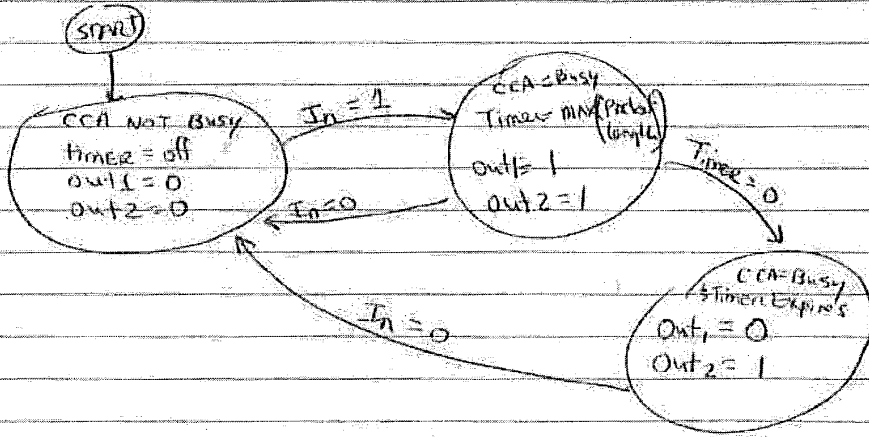 START
CCA NOT BUSY
timer = off
out1 = 0
out2 = 0
In = 1
In = 0
CCA = Busy
Timer = MAX
length
Out1 = 1
Out2 = 1
Timer = 0
CCA = Busy
& Timer Expires
Out1 = 0
Out2 = 1
In = 0